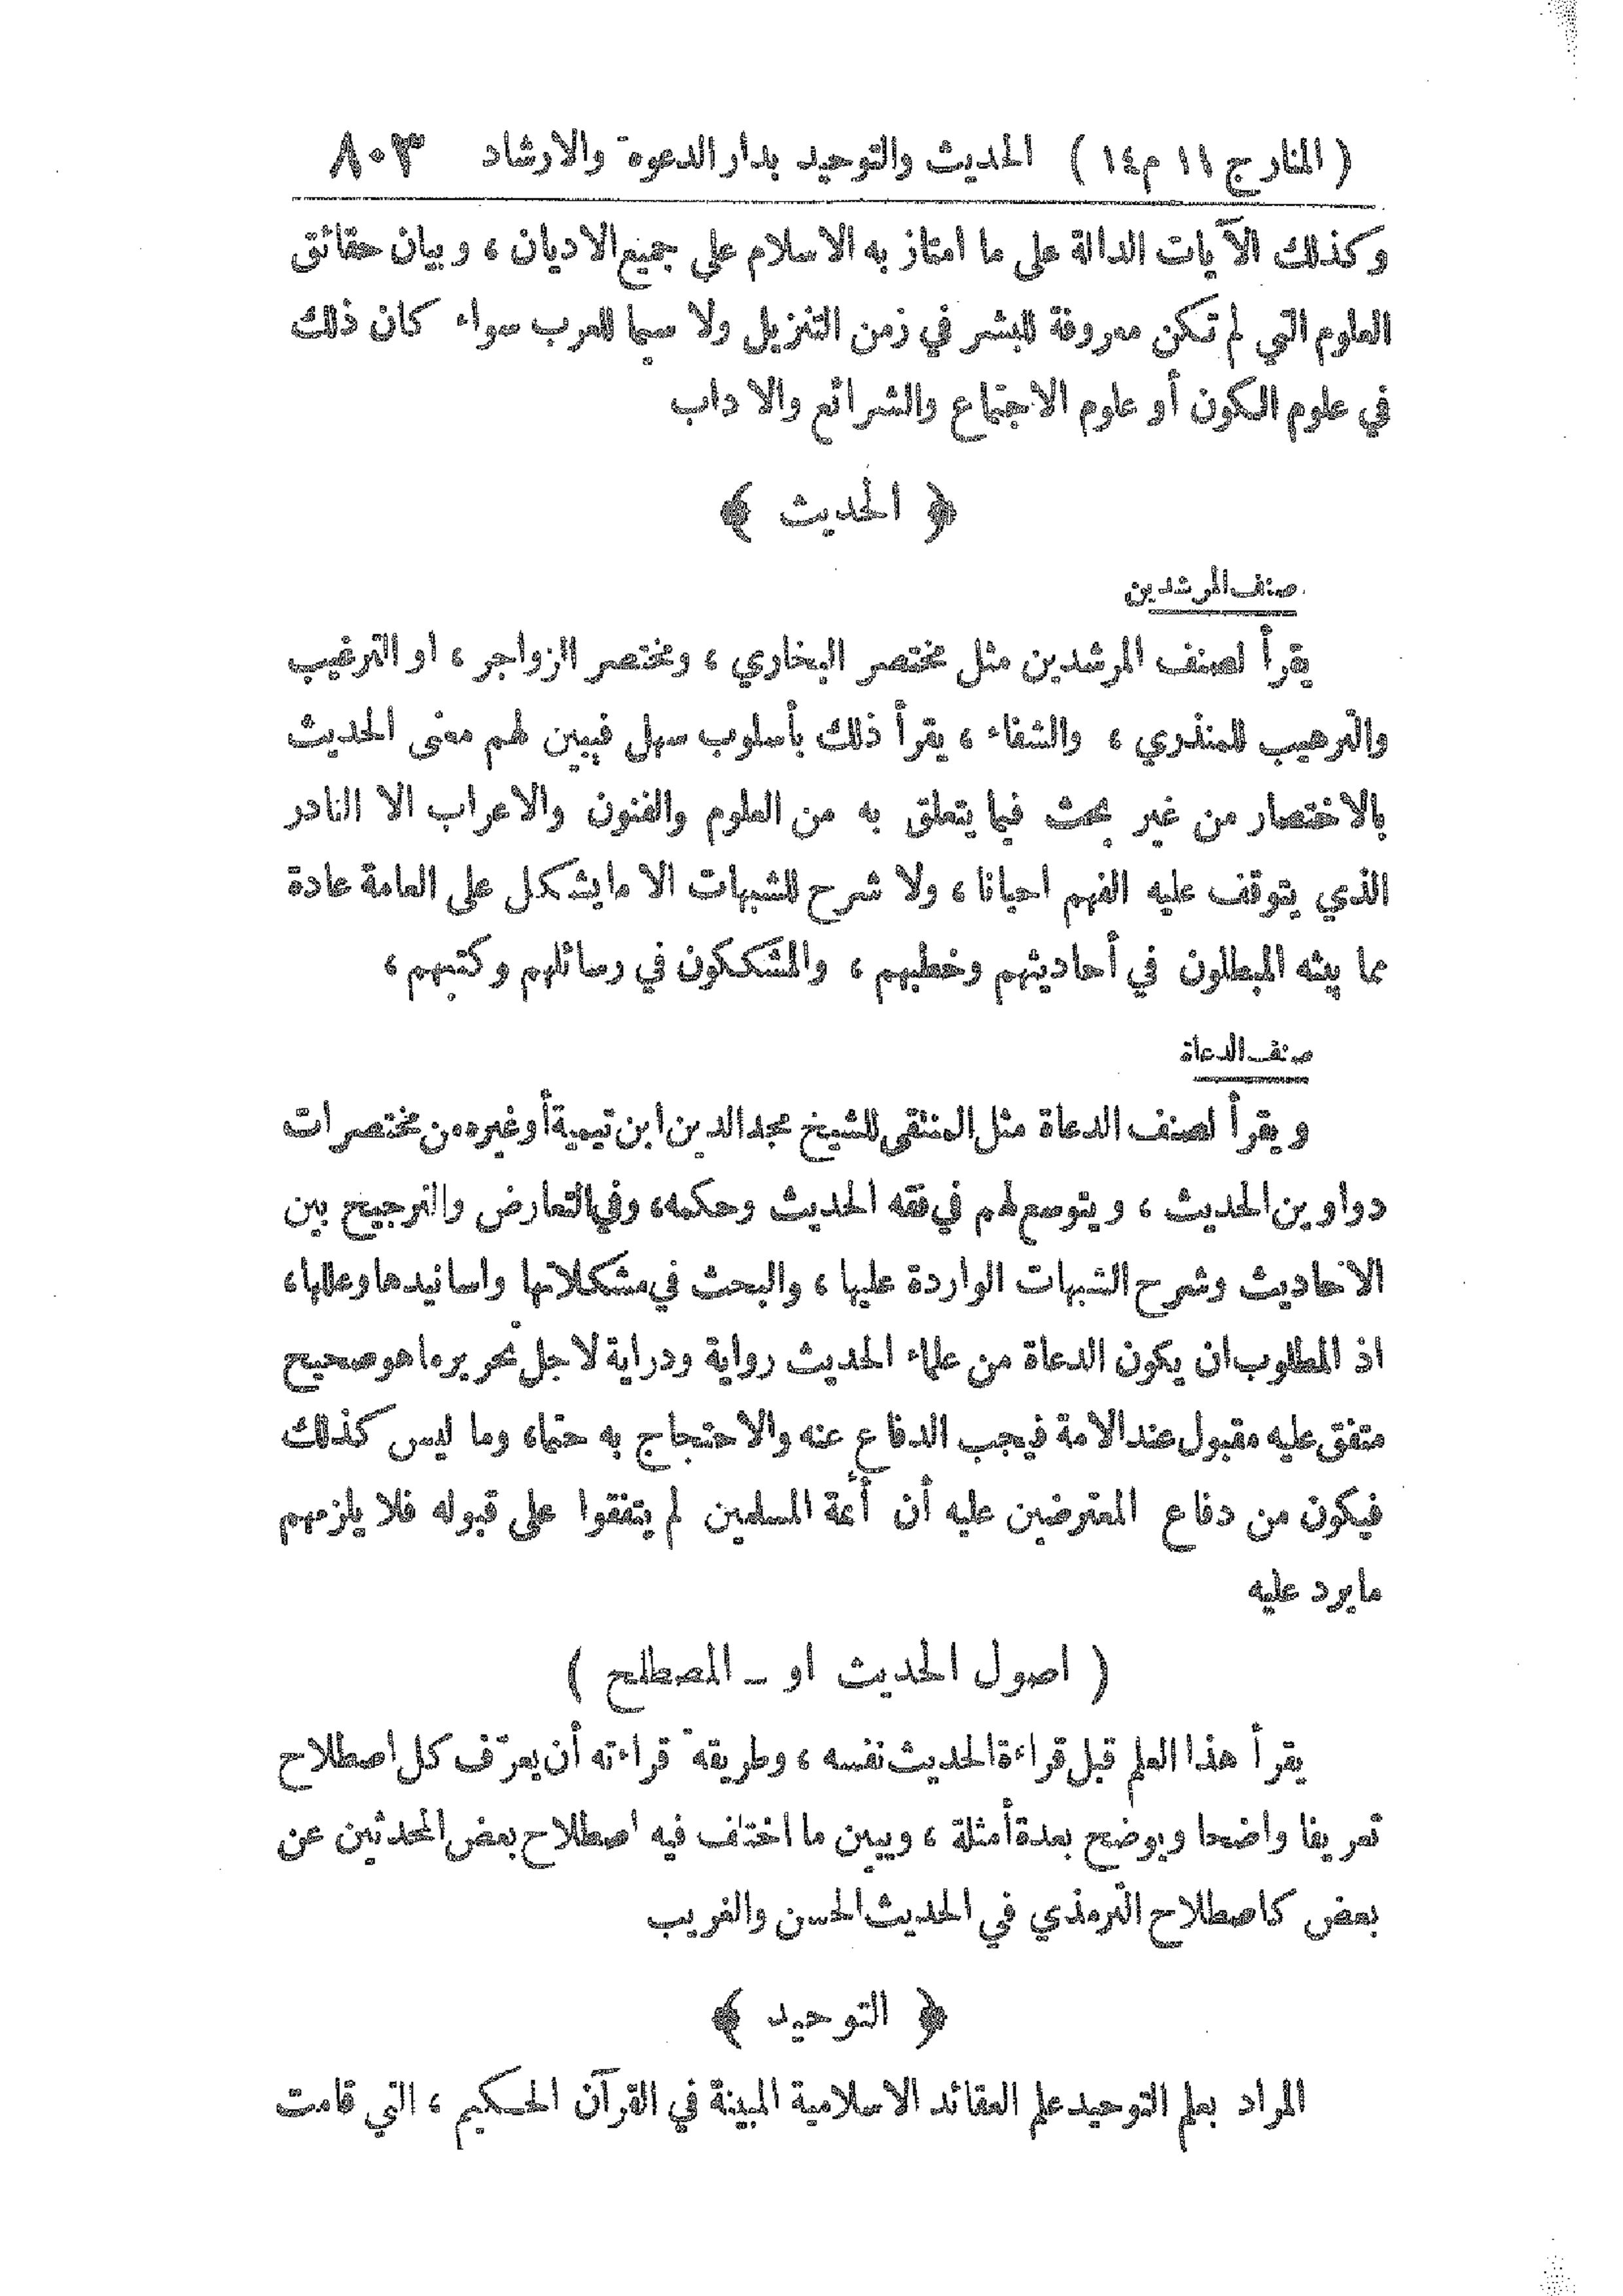 ( المنار ج ١١ م ١٤ ) الحديث والتوحيد بدار الدعوة والارشاد ٨٠٣
وكذلك الآيات الدالة على ما امتاز به الاسلام على جميع الاديان ، وبيان حقائق
العلوم التي لم تكن معروفة للبشر في زمن التنزيل ولا سيما للعرب سواء كان ذلك
في علوم الكون أو علوم الاجتماع والشرائع والآداب
﴿ الحديث ﴾
صنف المرشدين
يقرأ لصنف المرشدين مثل مختصر البخاري ، ومختصر الزواجر ، او الترغيب
والترهيب للمنذري ، والشفاء ، يقرأ ذلك بأسلوب سهل فيبين لهم معنى الحديث
بالاختصار من غير بحث فيما يتعلق به من العلوم والفنون والاعراب الا النادر
الذي يتوقف عليه الفهم احيانا ، ولا شرح للشبهات الا ما يشكل على العامة عادة
مما يبثه المبطلون في أحاديثهم وخطبهم ، والمشككون في رسائلهم وكتبهم ،
صنف الدعاة
ويقرأ لصنف الدعاة مثل المنتقى للشيخ مجد الدين ابن تيمية أو غيره من مختصرات
دواوين الحديث ، ويتوسع لهم في فقه الحديث وحكمه، وفي التعارض والترجيح بين
الاحاديث وشرح الشبهات الواردة عليها ، والبحث في مشكلاتها واسانيدها وعللها،
اذ المطلوب ان يكون الدعاة من علماء الحديث رواية ودراية لاجل تحرير ما هو صحيح
متفق عليه مقبول عند الامة فيجب الدفاع عنه والاحتجاج به حتما، وما ليس كذلك
فيكون من دفاع المعترضين عليه أن أئمة المسلمين لم يتفقوا على قبوله فلا يلزمهم
ما يرد عليه
( اصول الحديث او – المصطلح )
يقرأ هذا العلم قبل قراءة الحديث نفسه ، وطريقة قراءته أن يعرّف كل اصطلاح
تعريفا واضحا ويوضح بعدة أمثلة ، ويبين ما اختلف فيه اصطلاح بعض المحدثين عن
بعض كاصطلاح الترمذي في الحديث الحسن والغريب
﴿ التوحيد ﴾
المراد بعلم التوحيد علم العقائد الاسلامية المبينة في القرآن الحكيم ، التي قامت